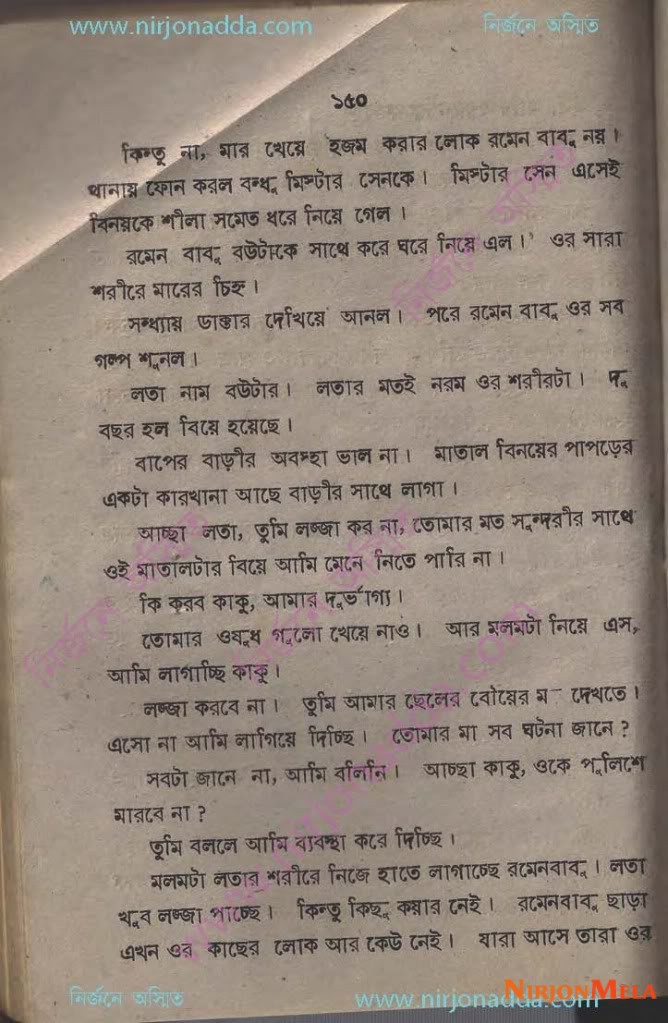 www.nirjonadda.com নির্জনে অস্মিত
১৫০
কিন্তু না, মার খেয়ে হজম করার লোক রমেন বাবু নয়।
থানায় ফোন করল বন্ধু মিস্টার সেনকে। মিস্টার সেন এসেই
বিনয়কে শীলা সমেত ধরে নিয়ে গেল।
রমেন বাবু বউটাকে সাথে করে ঘরে নিয়ে এল।' ওর সারা
শরীরে মারের চিহ্ন।
সন্ধ্যায় ডাক্তার দেখিয়ে আনল। পরে রমেন বাবু ওর সব
গল্প শুনল।
লতা নাম বউটার। লতার মতই নরম ওর শরীরটা। দু
বছর হল বিয়ে হয়েছে।
বাপের বাড়ীর অবস্হা ভাল না। মাতাল বিনয়ের পাপড়ের
একটা কারখানা আছে বাড়ীর সাথে লাগা।
আচ্ছা লতা, তুমি লজ্জা কর না, তোমার মত সুন্দরীর সাথে
ওই মাতালটার বিয়ে আমি মেনে নিতে পারি না।
কি করব কাকু, আমার দুর্ভাগ্য।
তোমার ওষুধ গুলো খেয়ে নাও। আর মলমটা নিয়ে এস,
আমি লাগাচ্ছি কাকু।
লজ্জা করবে না। তুমি আমার ছেলের বৌয়ের ম দেখতে।
এসো না আমি লাগিয়ে দিচ্ছি। তোমার মা সব ঘটনা জানে?
সবটা জানে না, আমি বলিনি। আচ্ছা কাকু, ওকে পুলিশে
মারবে না?
তুমি বললে আমি ব্যবস্থা করে দিচ্ছি।
মলমটা লতার শরীরে নিজে হাতে লাগাচ্ছে রমেনবাবু। লতা
খুব লজ্জা পাচ্ছে। কিন্তু কিছু করার নেই। রমেনবাবু ছাড়া
এখন ওর কাছের লোক আর কেউ নেই। যারা আসে তারা ওর
NIRJONMELA
নির্জনে অস্মিত www.nirjonadda.com